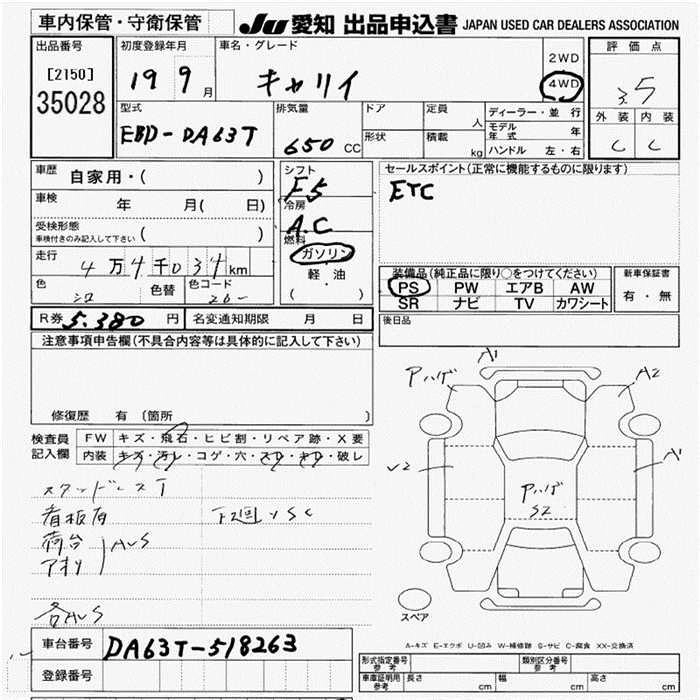 車内保管・守衛保管
JU 愛知 出品申込書 JAPAN USED CAR DEALERS ASSOCIATION
出品番号
[2150]
35028
初度登録年月
19 9月
車名・グレード
キャリイ
2WD
4WD
評価点
3.5
外装 内装
C C
型式
EBD-DA63T
排気量
650 CC
ドア
形状
定員
人
積載
kg
ディーラー・並行
モデル年式 年
ハンドル 左・右
車歴
自家用・( )
車検
年 月( 日)
受検形態
車検付きのみ記入して下さい ( )
走行
4万4千034km
色
シロ
色替
色コード
シフト
F5
冷房
A.C
燃料
ガソリン
軽油
( )
セールスポイント(正常に機能するものに限ります)
ETC
装備品(純正品に限り○をつけてください)
PS PW エアB AW
SR ナビ TV カワシート
新車保証書
有・無
R券 5.380 円 名変通知期限 月 日
後日品
注意事項申告欄(不具合内容等は具体的に記入して下さい)
修復歴 有 (箇所
検査員
記入欄
FW キズ・飛石・ヒビ割・リペア跡・X要
内装 キズ・汚レ・コゲ・穴・スレ・キレ・破レ
スタッドレスT
看板有
荷台
アオリ
AUS
各AUS
A1
アハゲ
A2
A1
アハゲ
S2
スペア
A-キズ E-エクボ U-凹み W-補修跡 S-サビ C-腐食 XX-交換済
車台番号
DA63T-518263
登録番号
形式指定番号
参考
類別区分番号
参考
車庫証明用
参考
長さ cm
幅 cm
高さ cm